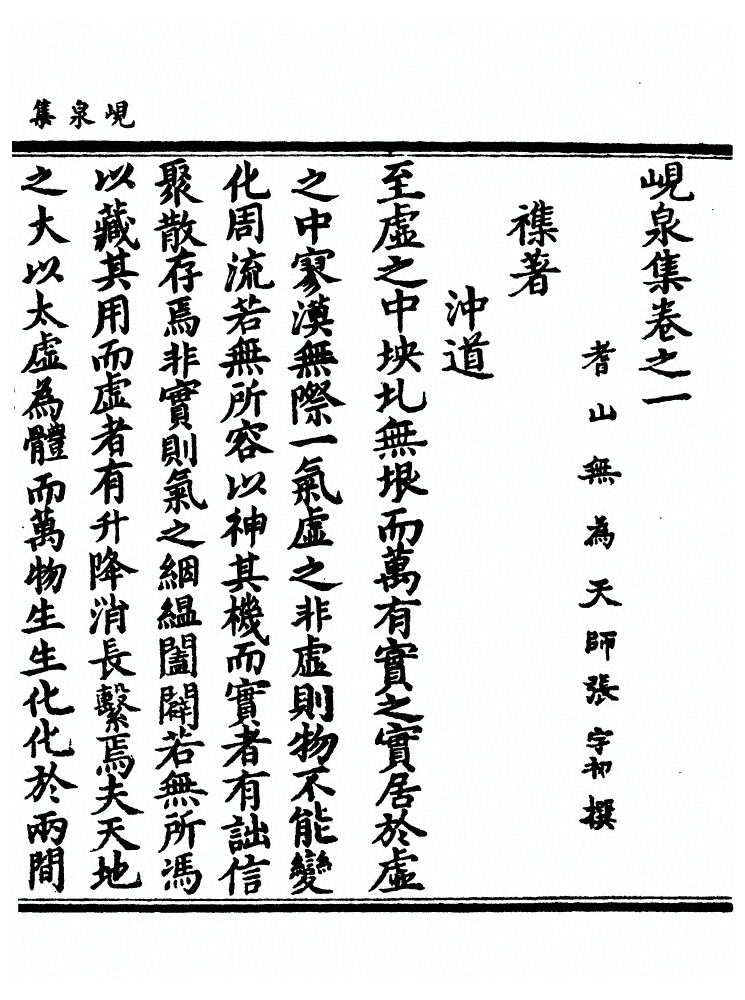 峴泉集
峴泉集卷之一
耆山無為天師張宇初撰
襍著
沖道
至虛之中坱圠無垠而萬有實之實居於虛
之中寥漠無際一氣虛之非虛則物不能變
化周流若無所容以神其機而實者有詘信
聚散存焉非實則氣之絪縕闔闢若無所馮
以藏其用而虛者有升降消長繫焉夫天地
之大以太虛為體而萬物生生化化於兩間